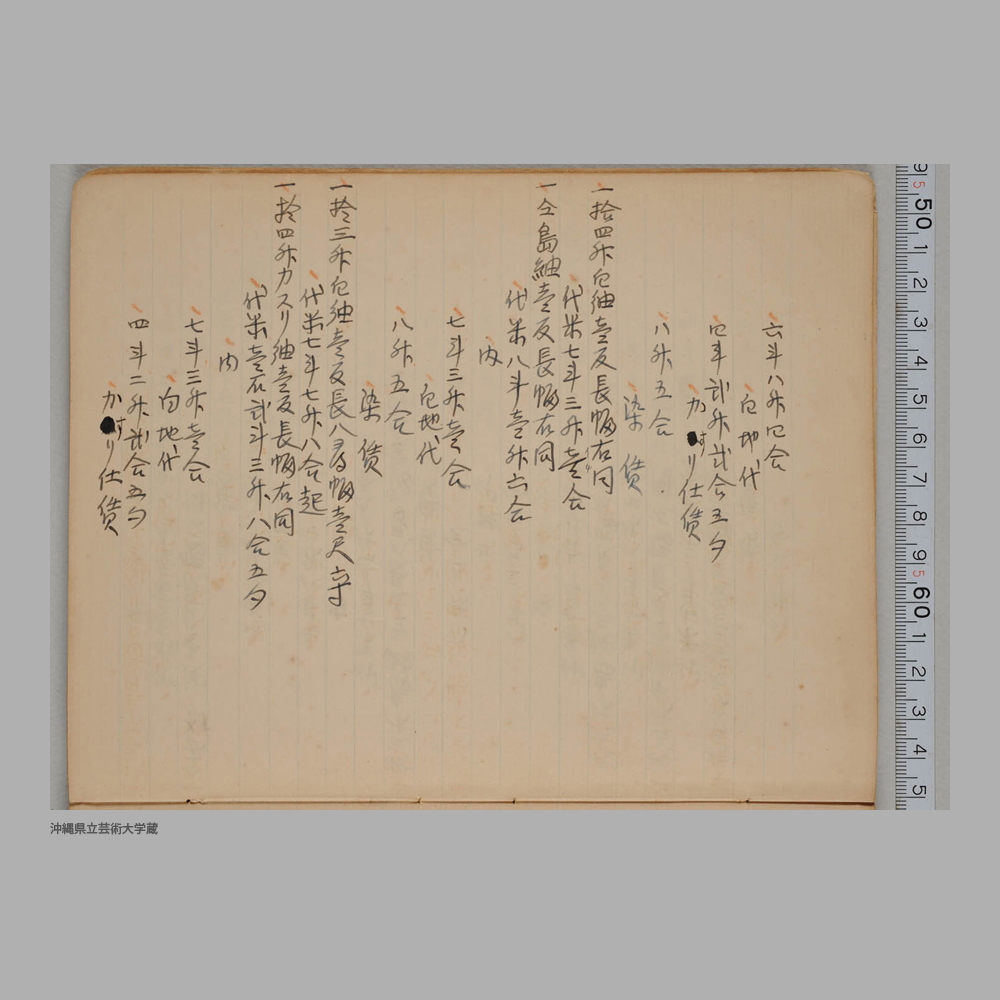 六斗八升四合
白地代
四斗弐升弐合五夕
かすり仕賃
八升五合
染賃
一拾四升白紬壱反長幅右同
代米七斗三升壱合
一仝島紬壱反長幅右同
代米八斗壱升六合
内
七斗三升壱合
白地代
八升五合
染賃
一拾三升白紬壱反長八ヨ幅壱尺寸
代米七斗七升八合起
一拾四升カスリ紬壱反長幅右同
代米壱石弐斗三升八合五夕
内
七斗三升壱合
白地代
四斗二升弐合五夕
かすり仕賃
9 5 50 1 2 3 4 5 6 7 8 9 5 60 1 2 3 4 5
沖縄県立芸術大学蔵